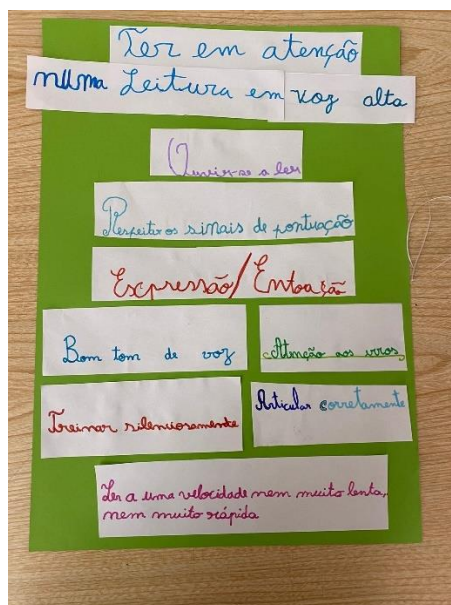 Ter em atenção
numa Leitura em voz alta
Ouvir-se a ler
Respeitar os sinais de pontuação
Expressão/Entoação
Bom tom de voz
Atenção aos erros
Treinar silenciosamente
Articular corretamente
Ler a uma velocidade nem muito lenta,
nem muito rápida